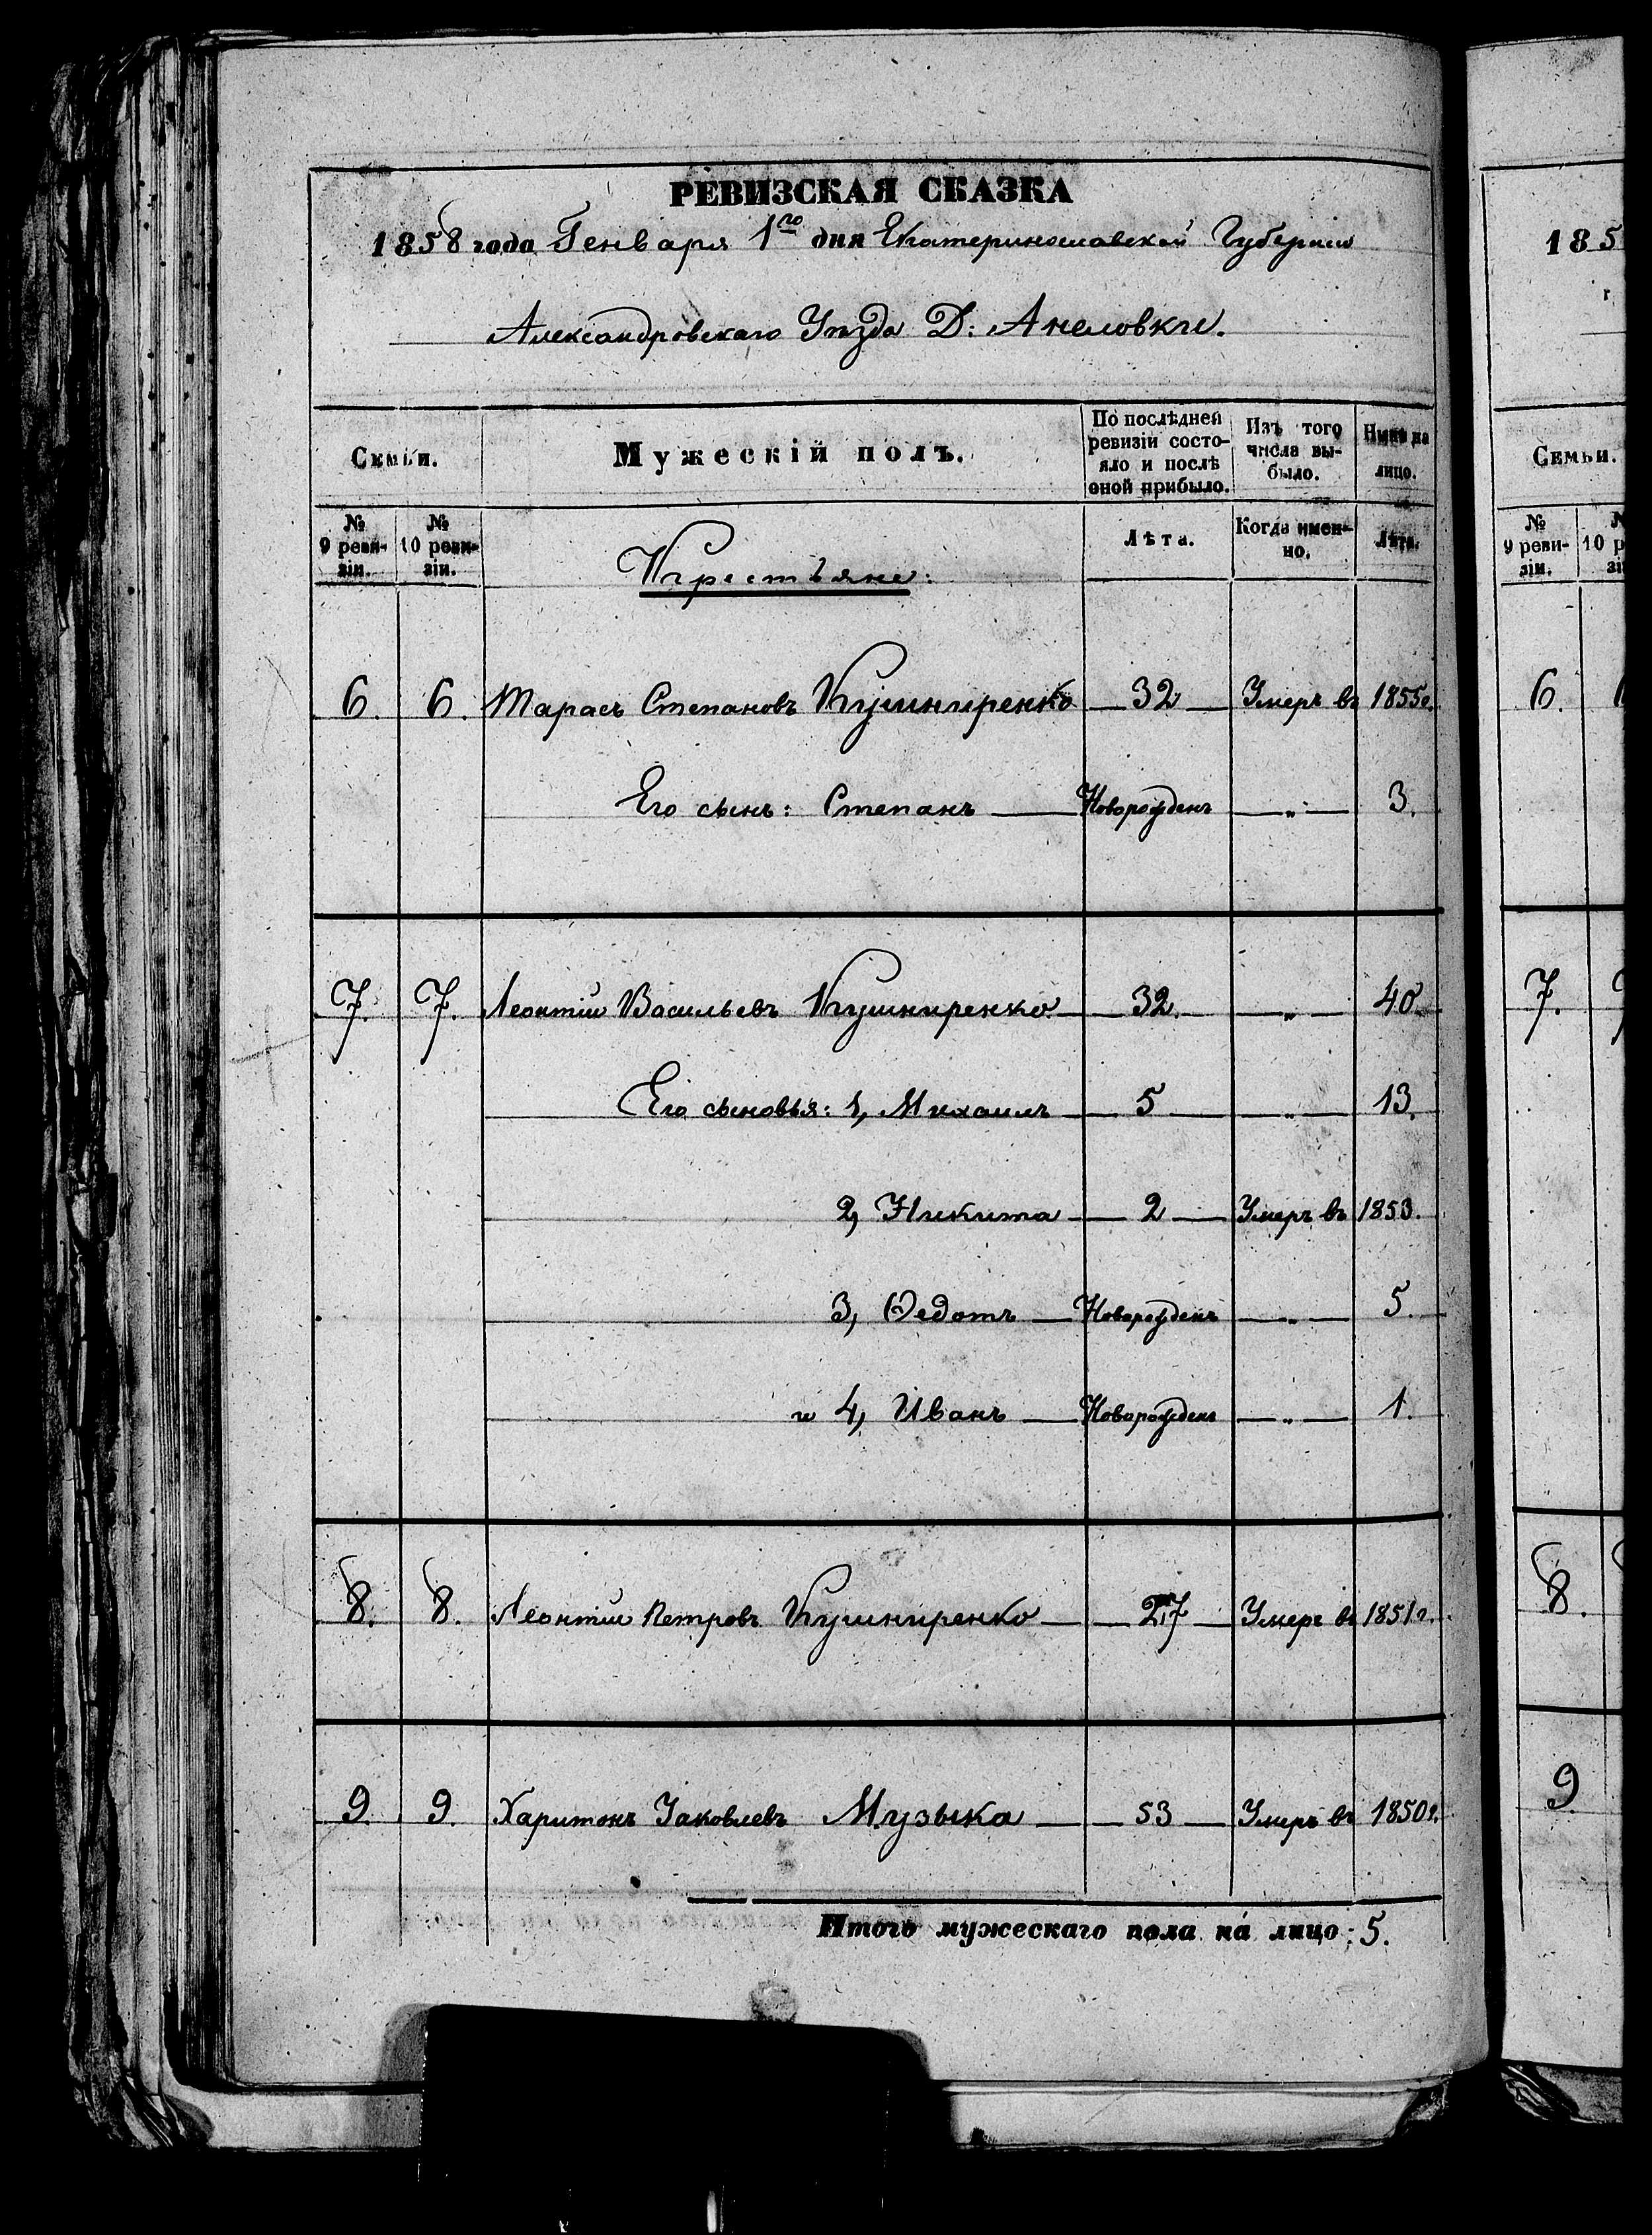 РЕВИЗСКАЯ СКАЗКА
1858 года Генваря 1го дня Екатеринославской Губернии
Александровскаго Уѣзда Д: Анеловки.
Семьи.
Мужескій полъ.
По послѣдней ревизіи состояло и послѣ оной прибыло.
Изъ того числа выбыло.
Нынѣ на лицо.
№ 9 ревизіи.
№ 10 ревизіи.
Крестьяне:
Лѣта.
Когда именно.
Лѣта.
6. 6. Тарасъ Степановъ Кушниренко 32 Умеръ въ 1855г.
Его сынъ: Степанъ Новорожденъ „ 3.
7. 7. Леонтій Васильевъ Кушниренко 32. „ 40.
Его сыновья: 1, Михаилъ 5 „ 13.
2, Никита 2 Умеръ въ 1853.
3, Ѳедотъ Новорожденъ „ 5.
и 4, Иванъ Новорожденъ „ 1.
8. 8. Леонтій Петровъ Кушниренко 27 Умеръ въ 1851г.
9. 9. Харитонъ Яковлевъ Музыка 53 Умеръ въ 1850г.
Итого мужескаго пола на лицо: 5.
185
Семьи.
№ 9 ревизіи.
6.
7.
8.
9